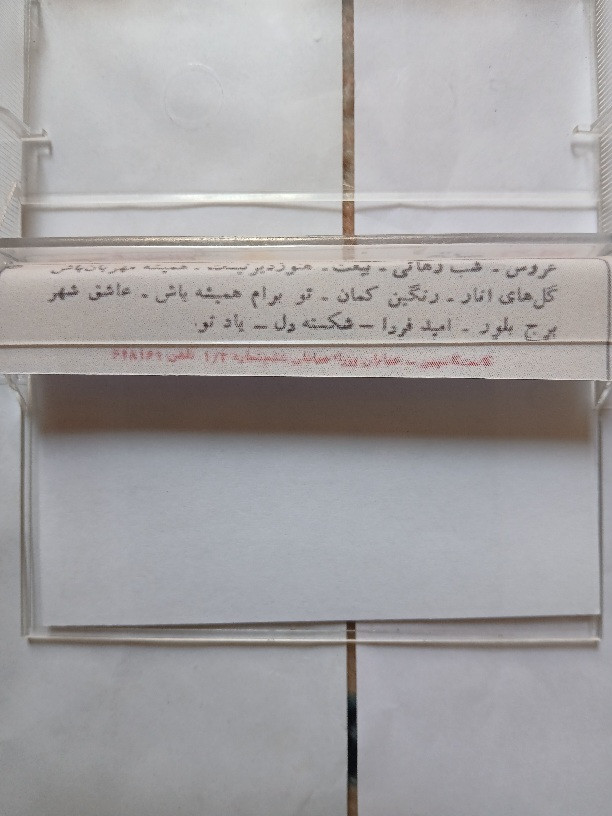 عروس ـ شب رهائی ـ بیعت ـ هنوز دیر نیست ـ همیشه مهربان باش
گل‌های انار ـ رنگین کمان ـ تو برام همیشه باش ـ عاشق شهر
برج بلور ـ امید فردا ـ شکسته دل ـ یاد تو.
خیابان تلفن